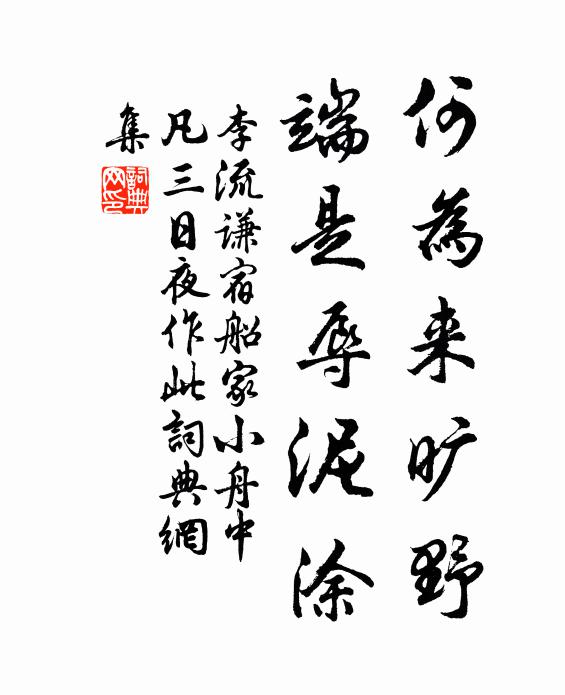 何為来旷野
端是辱泥涂
李流谦宿船家小舟中
凡三日夜作此詞典網
集
詞典网印